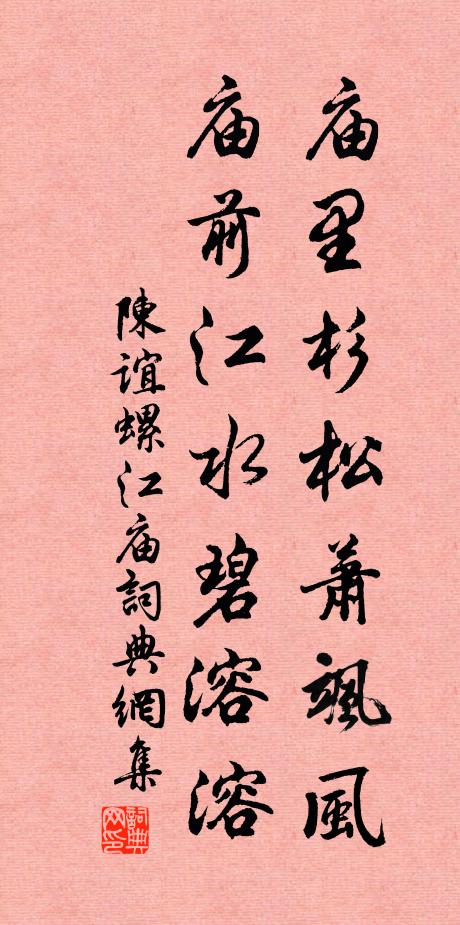 庙里杉松蕭颯風
庙前江水碧溶溶
陳誼螺江庙詞典網集
詞典
网印